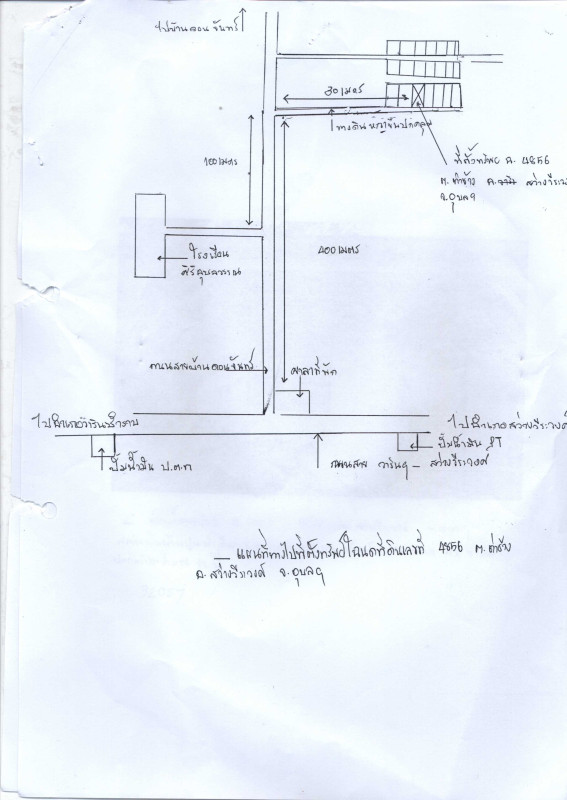 ไปบ้านดอนจันทร์
30 เมตร
ทางดิน
ที่ตั้งทรัพย์ ฉ. 4856
ต. ท่าช้าง อ. สว่างวีระ
จ.อุบลฯ
100 เมตร
โรงเรียน
400 เมตร
ถนนสายบ้านดอนจันทร์
ศาลาที่พัก
ไปอำเภอวารินชำราบ
ไปอำเภอสว่างวีระวงศ์
ปั๊มน้ำมัน ป.ต.ท
ปั๊มน้ำมัน PT
ถนนสาย วารินฯ - สว่างวีระวงศ์
แผนที่ทางไปที่ตั้งทรัพย์โฉนดที่ดินเลขที่ 4856 ต. ท่าช้าง
อ. สว่างวีระวงศ์ จ.อุบลฯ